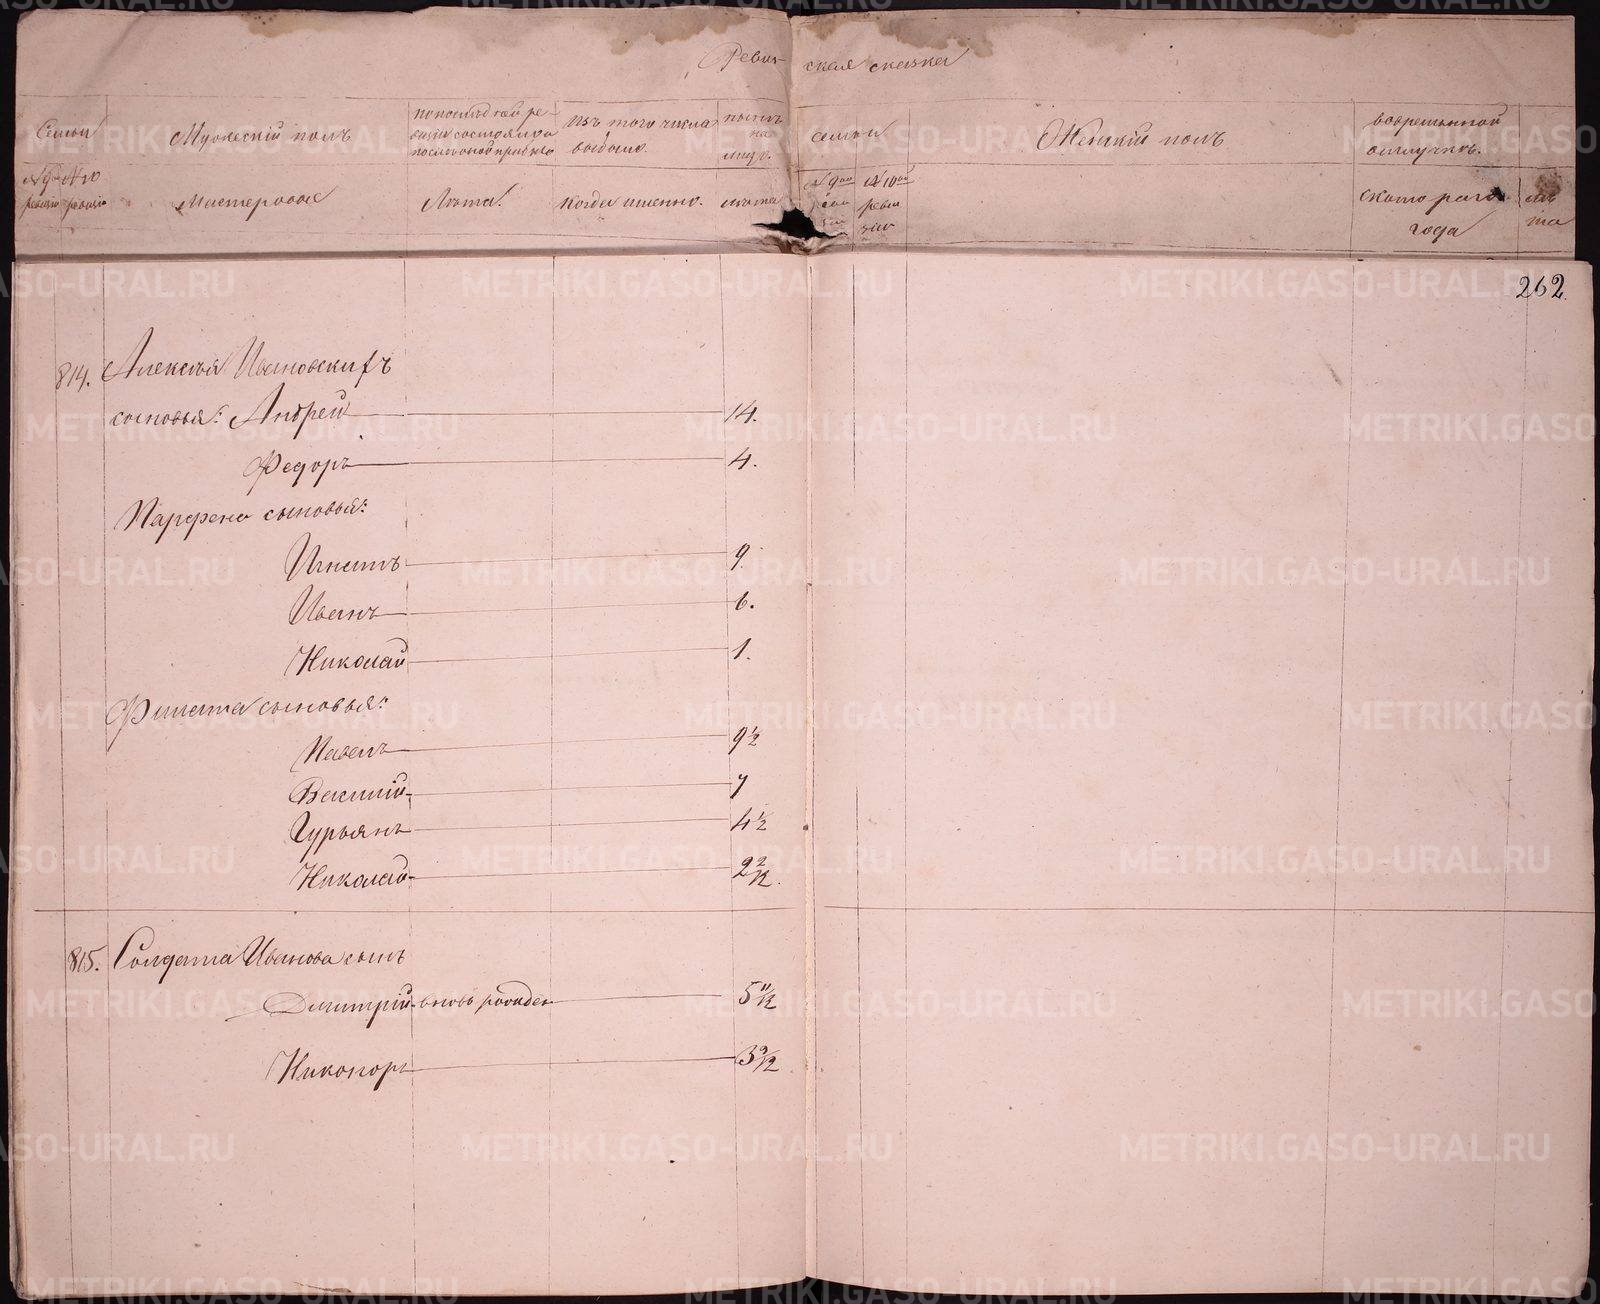 Ревизская сказка
Семьи
Мужескій полъ
по последней ре-
визіи состояло и
после оной прибыло
изъ того числа
выбыло.
ныне
на
лицо.
семьи
Женскій полъ
во временной
отлучкѣ.
№ 9й № 10
ревизіи ревизіи
Мастеровые
Лѣта.
Когда именно.
лѣта
№ 9ой
№ 10ой
реви
зіи
съ котораго
года
лѣ
та
262
814. Алексѣя Ивановскихъ
сыновья: Андрей 14.
Федоръ 4.
Парфена сыновья:
Игнатъ 9.
Иванъ 6.
Николай 1.
Филата сыновья:
Павелъ 9 1/2
Василій 7
Гурьянъ 4 1/2
Николай 2 2/12.
815. Солдата Иванова сынъ
Дмитрій вновь рожден 5 11/12
Никоноръ 3 9/12
METRIKI.GASO-URAL.RU